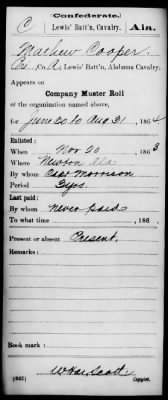 (Confederate.)
C Lewis' Batt'n, Cavalry. Ala.
Mathew Cooper
Pvt, Co. A, Lewis' Batt'n, Alabama Cavalry.
Appears on
Company Muster Roll
of the organization named above,
for June 20 to Aug 31, 1864
Enlisted:
When Nov 20, 1863
Where Newton Ala
By whom Capt Morrison
Period 3 yrs.
Last paid:
By whom Never paid
To what time , 186 .
Present or absent Present.
Remarks:
Book mark:
Scott
(642) Copyist.